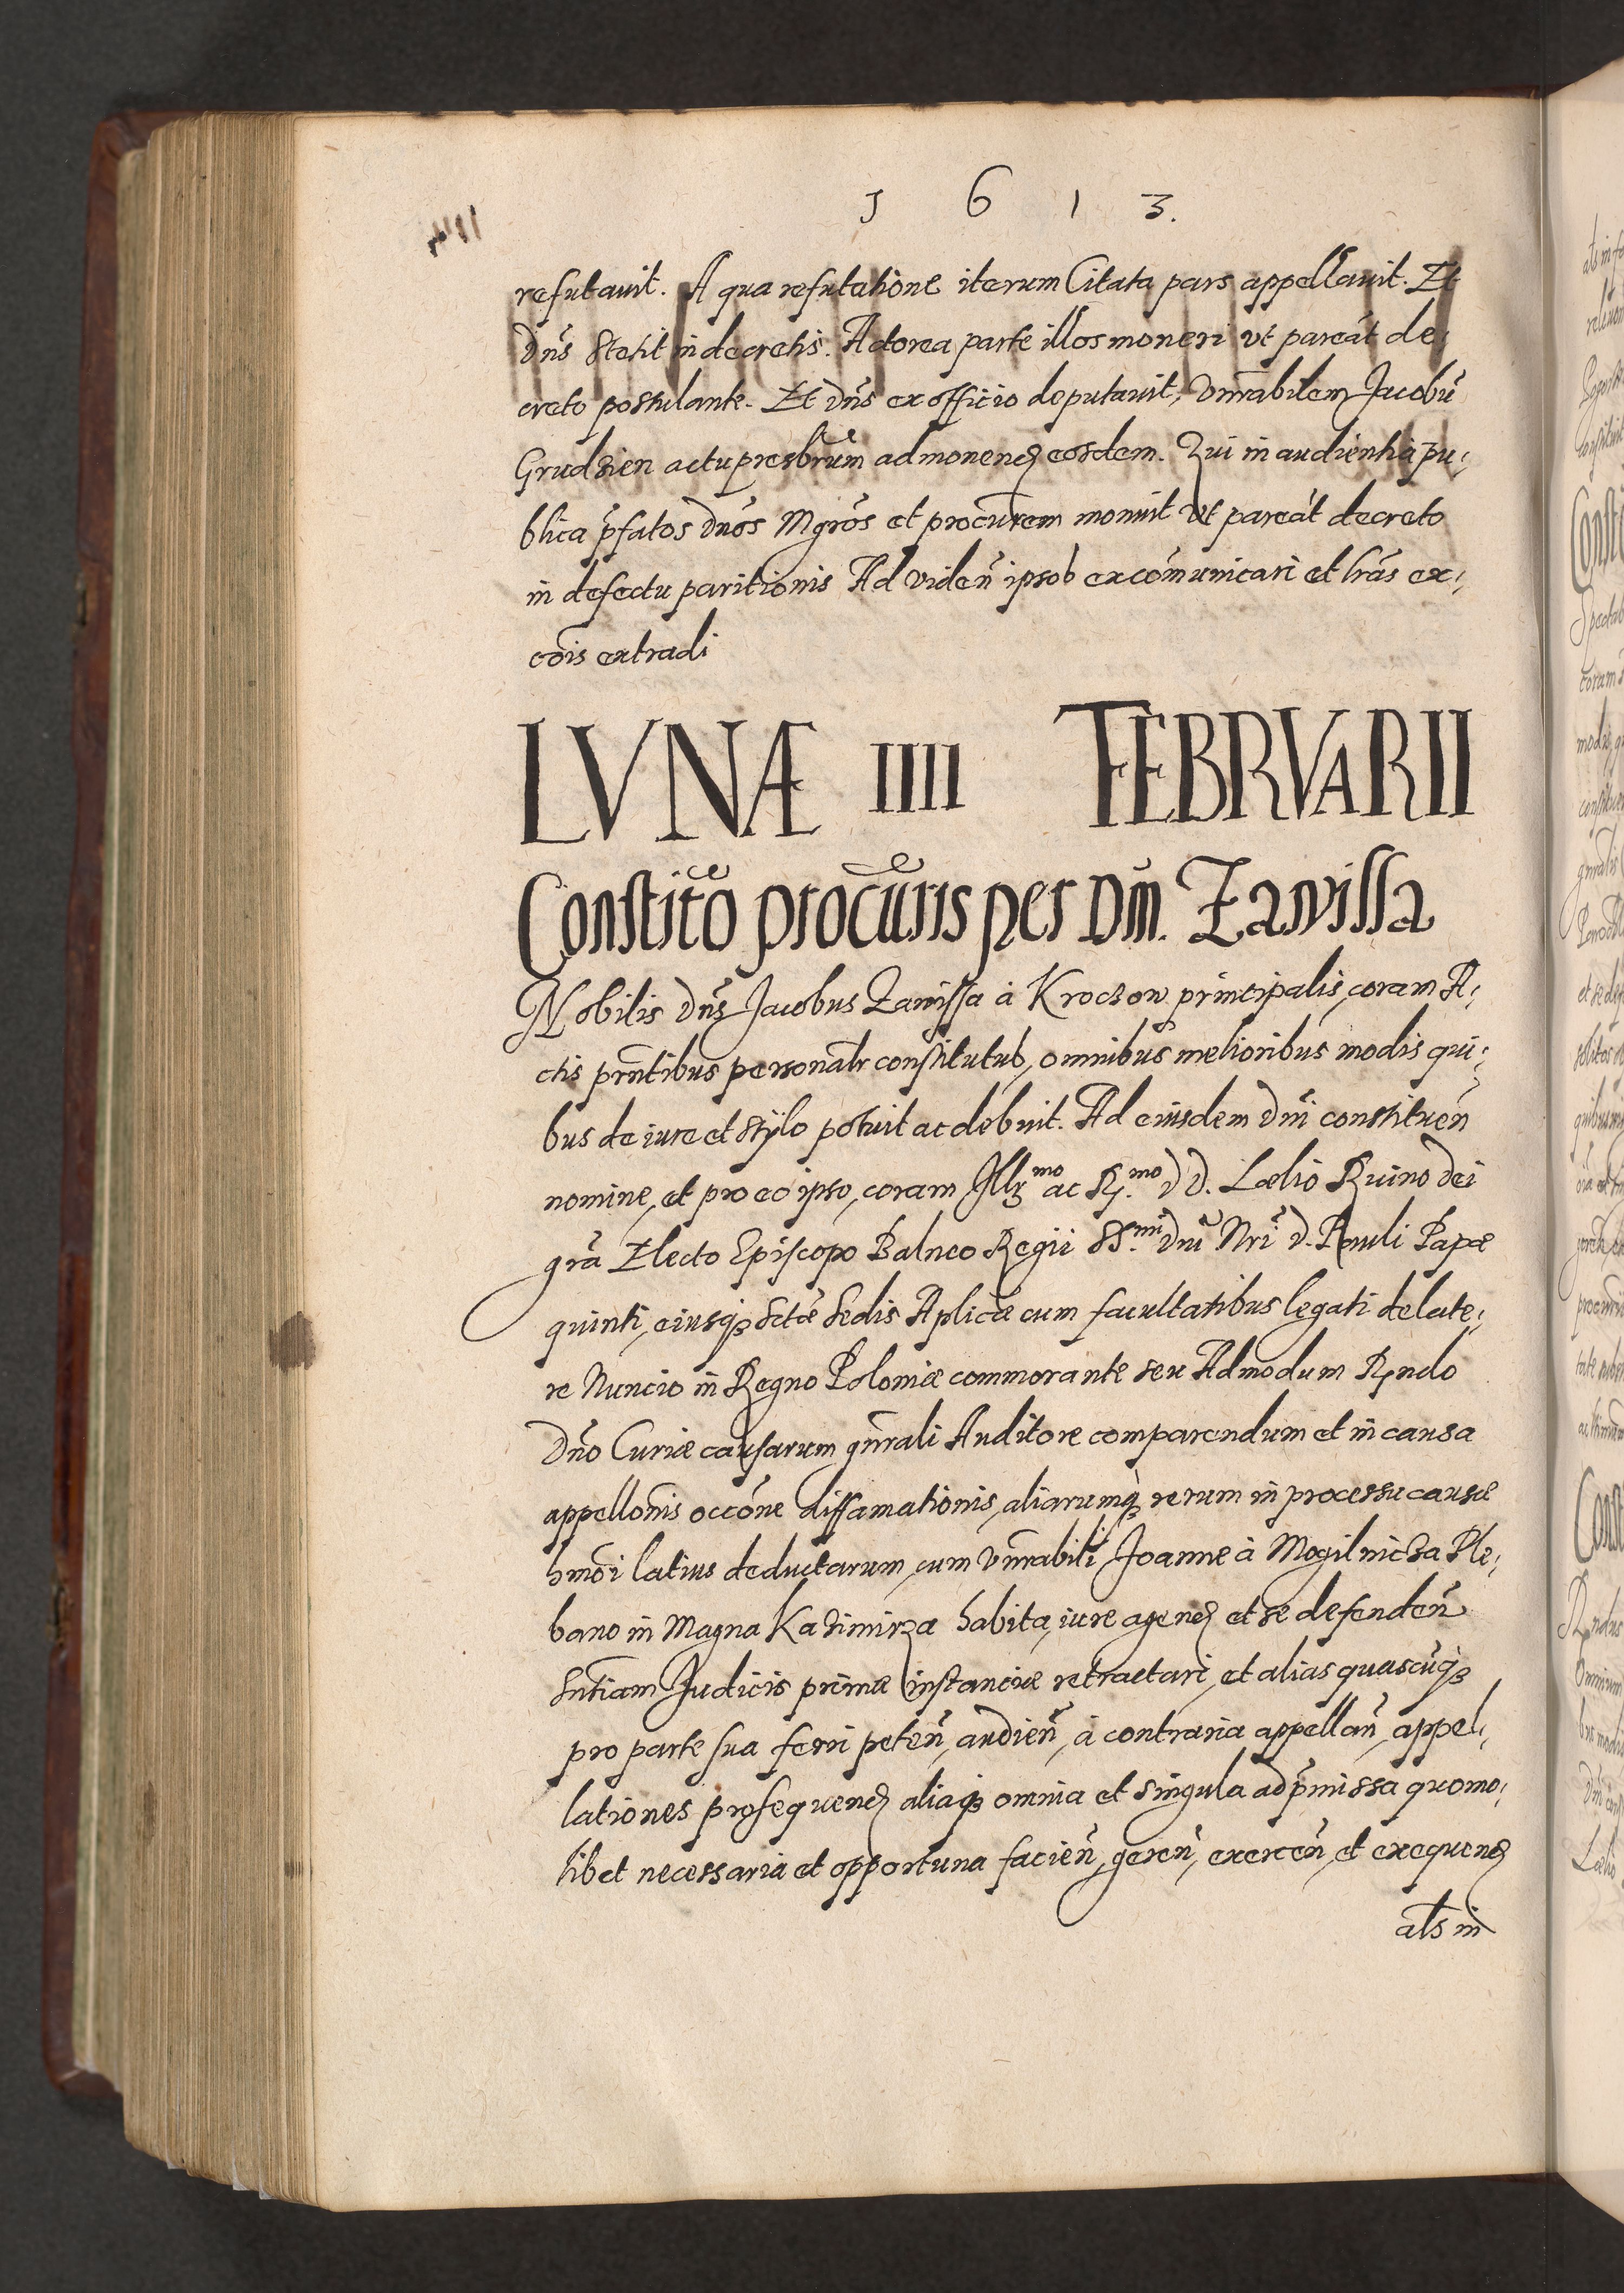 1613.
refutauit. A qua refutatione iterum Citata pars appellauit. Et
Dñs stetit in decretis. Actorea parte illos moneri vt pareāt de:
creto postulante. Et Dñs ex officio deputauit, Vnrabilem Jacobū
Grudzien actu presbrūm admonend eosdem. Qui in audientia pu:
blica p̃fatos Dnōs Mgrōs et procurem monuit vt pareāt decreto
in defectu paritionis Ad viden̄ ipsos excom̄unicari et lrās ex:
cōis extradi
LVNÆ IIII FEBRVARII
Constitō procūris per Dm̄. Zawissa
Nobilis Dñs Jacobus Zawissa à Kroczow principalis, coram A:
ctis prn̄tibus personalr constitutus, omnibus melioribus modis qui:
bus de iure et stylo potuit ac debuit. Ad eiusdem Dnī constituen̄
nomine, et pro eo ipso, coram Illmo ac R.mo D D. Lælio Ruino Dei
grā Electo Episcopo Balneo Regii SS.mi Dnī Nrī D. Pauli Papæ
quinti, eiusq; Sctæ Sedis Aplicæ cum facultatibus legati de late:
re Nuncio in Regno Poloniæ commorante seu Admodum Rndo
Dnō Curiæ causarum gnrāli Auditore comparendum et in causa
appellonīs occōne diffamationis, aliarumq; rerum in processu causæ
hmōi latius deductarum, cum Vnrabili Joanne à Mogilnicza Ple:
bano in Magna Kazimirza habita, iure agend et se defenden̄
Sntīam Judicis primæ instanciæ retractari, et alias quascūq;
pro parte sua ferri peten̄, audien̄, à contraria appellan̄, appel:
lationes prosequend aliaq; omnia et singula ad p̃missa quomo:
libet necessaria et opportuna facien̄, geren̄, exercen̄, et exequend
als in